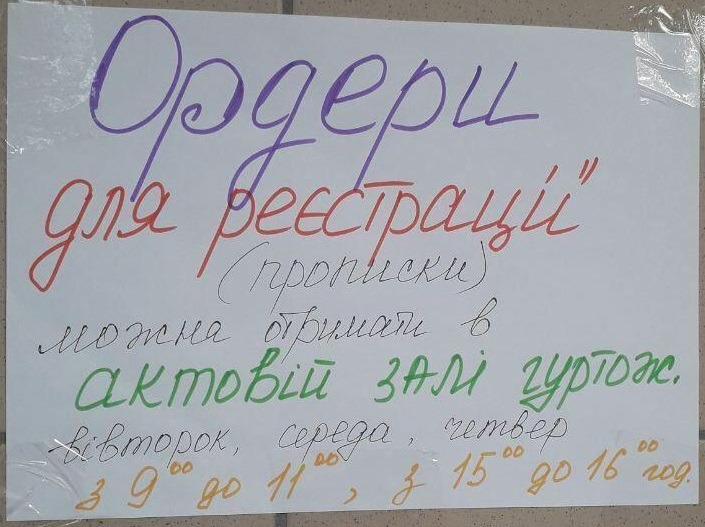 Ордери
для реєстрації
(прописки)
можна отримати в
актовій залі гуртож.
вівторок, середа, четвер
з 9⁰⁰ до 11⁰⁰, з 15⁰⁰ до 16⁰⁰ год.